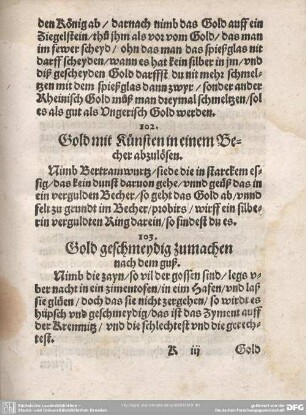 den König ab / darnach nimb das Gold auff ein
Ziegelstein / thů jhm als vor vom Gold / das man
im fewer scheyd / ohn das man das spießglas nit
darff scheyden / wann es hat kein silber in jm / vnd
diß gescheyden Gold darffst du nit mehr schmel-
tzen mit dem spießglas dann zwyr / sonder ander
Rheinisch Gold můß man dreymal schmeltzen / sol
es als gut als Vngerisch Gold werden.
102.
Gold mit Künsten in einem Be-
cher abzulösen.
Nimb Bertramwurtz / siede die in starckem es-
sig / das kein dunst daruon gehe / vnnd geüß das in
ein vergulden Becher / so geht das Gold ab / vnnd
felt zu grundt im Becher / probirs / wirff ein silbe-
rin verguldten Ring darein / so findest du es.
103.
Gold geschmeydig zumachen
nach dem guß.
Nimb die zayn / so vil der gossen sind / legs v-
ber nacht in ein zimentofen / in eim Hafen / vnd laß
sie glüen / doch das sie nicht zergehen / so wirdt es
hüpsch vnd geschmeydig / das ist das Zyment auff
der Kremnitz / vnd die schlechtest vnd die gerech-
test.
K iij Gold